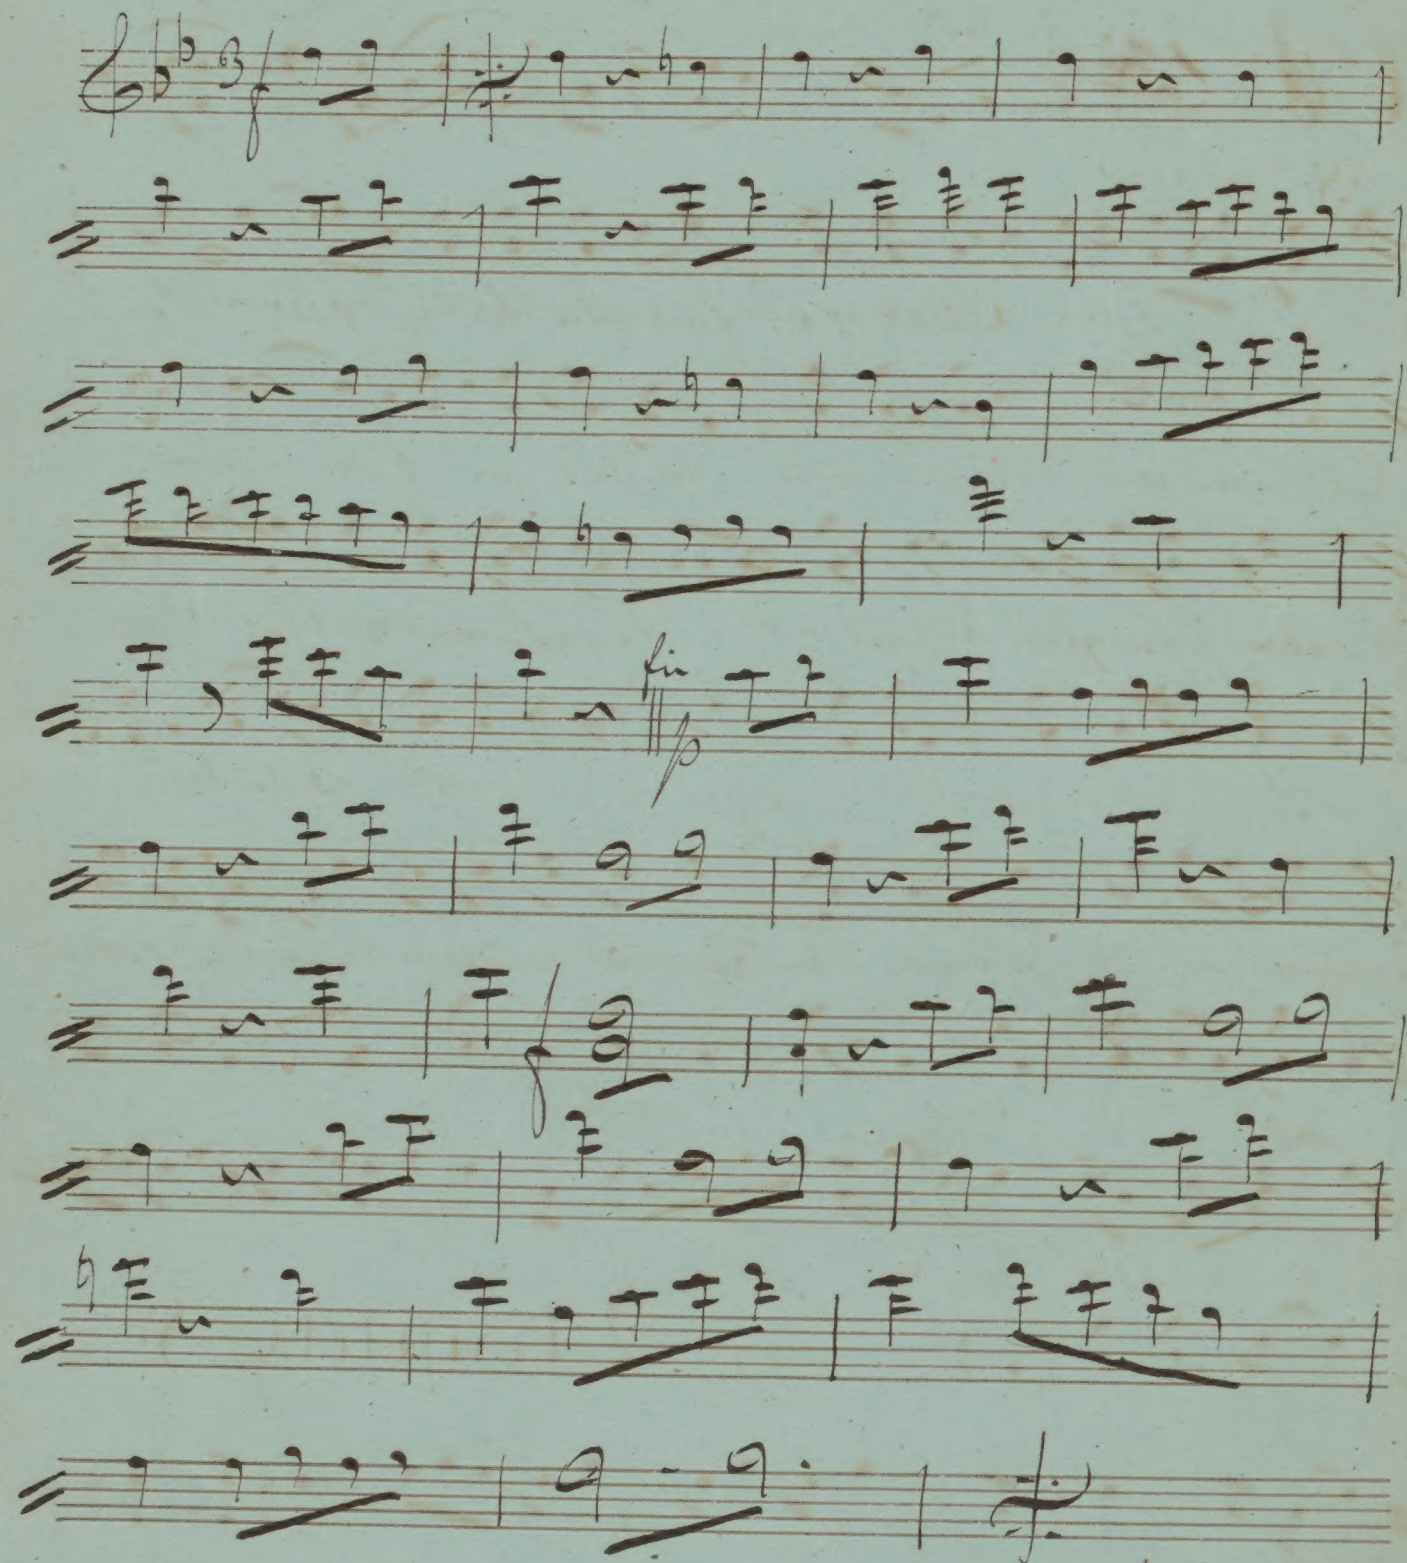 3 f
fin
p
f